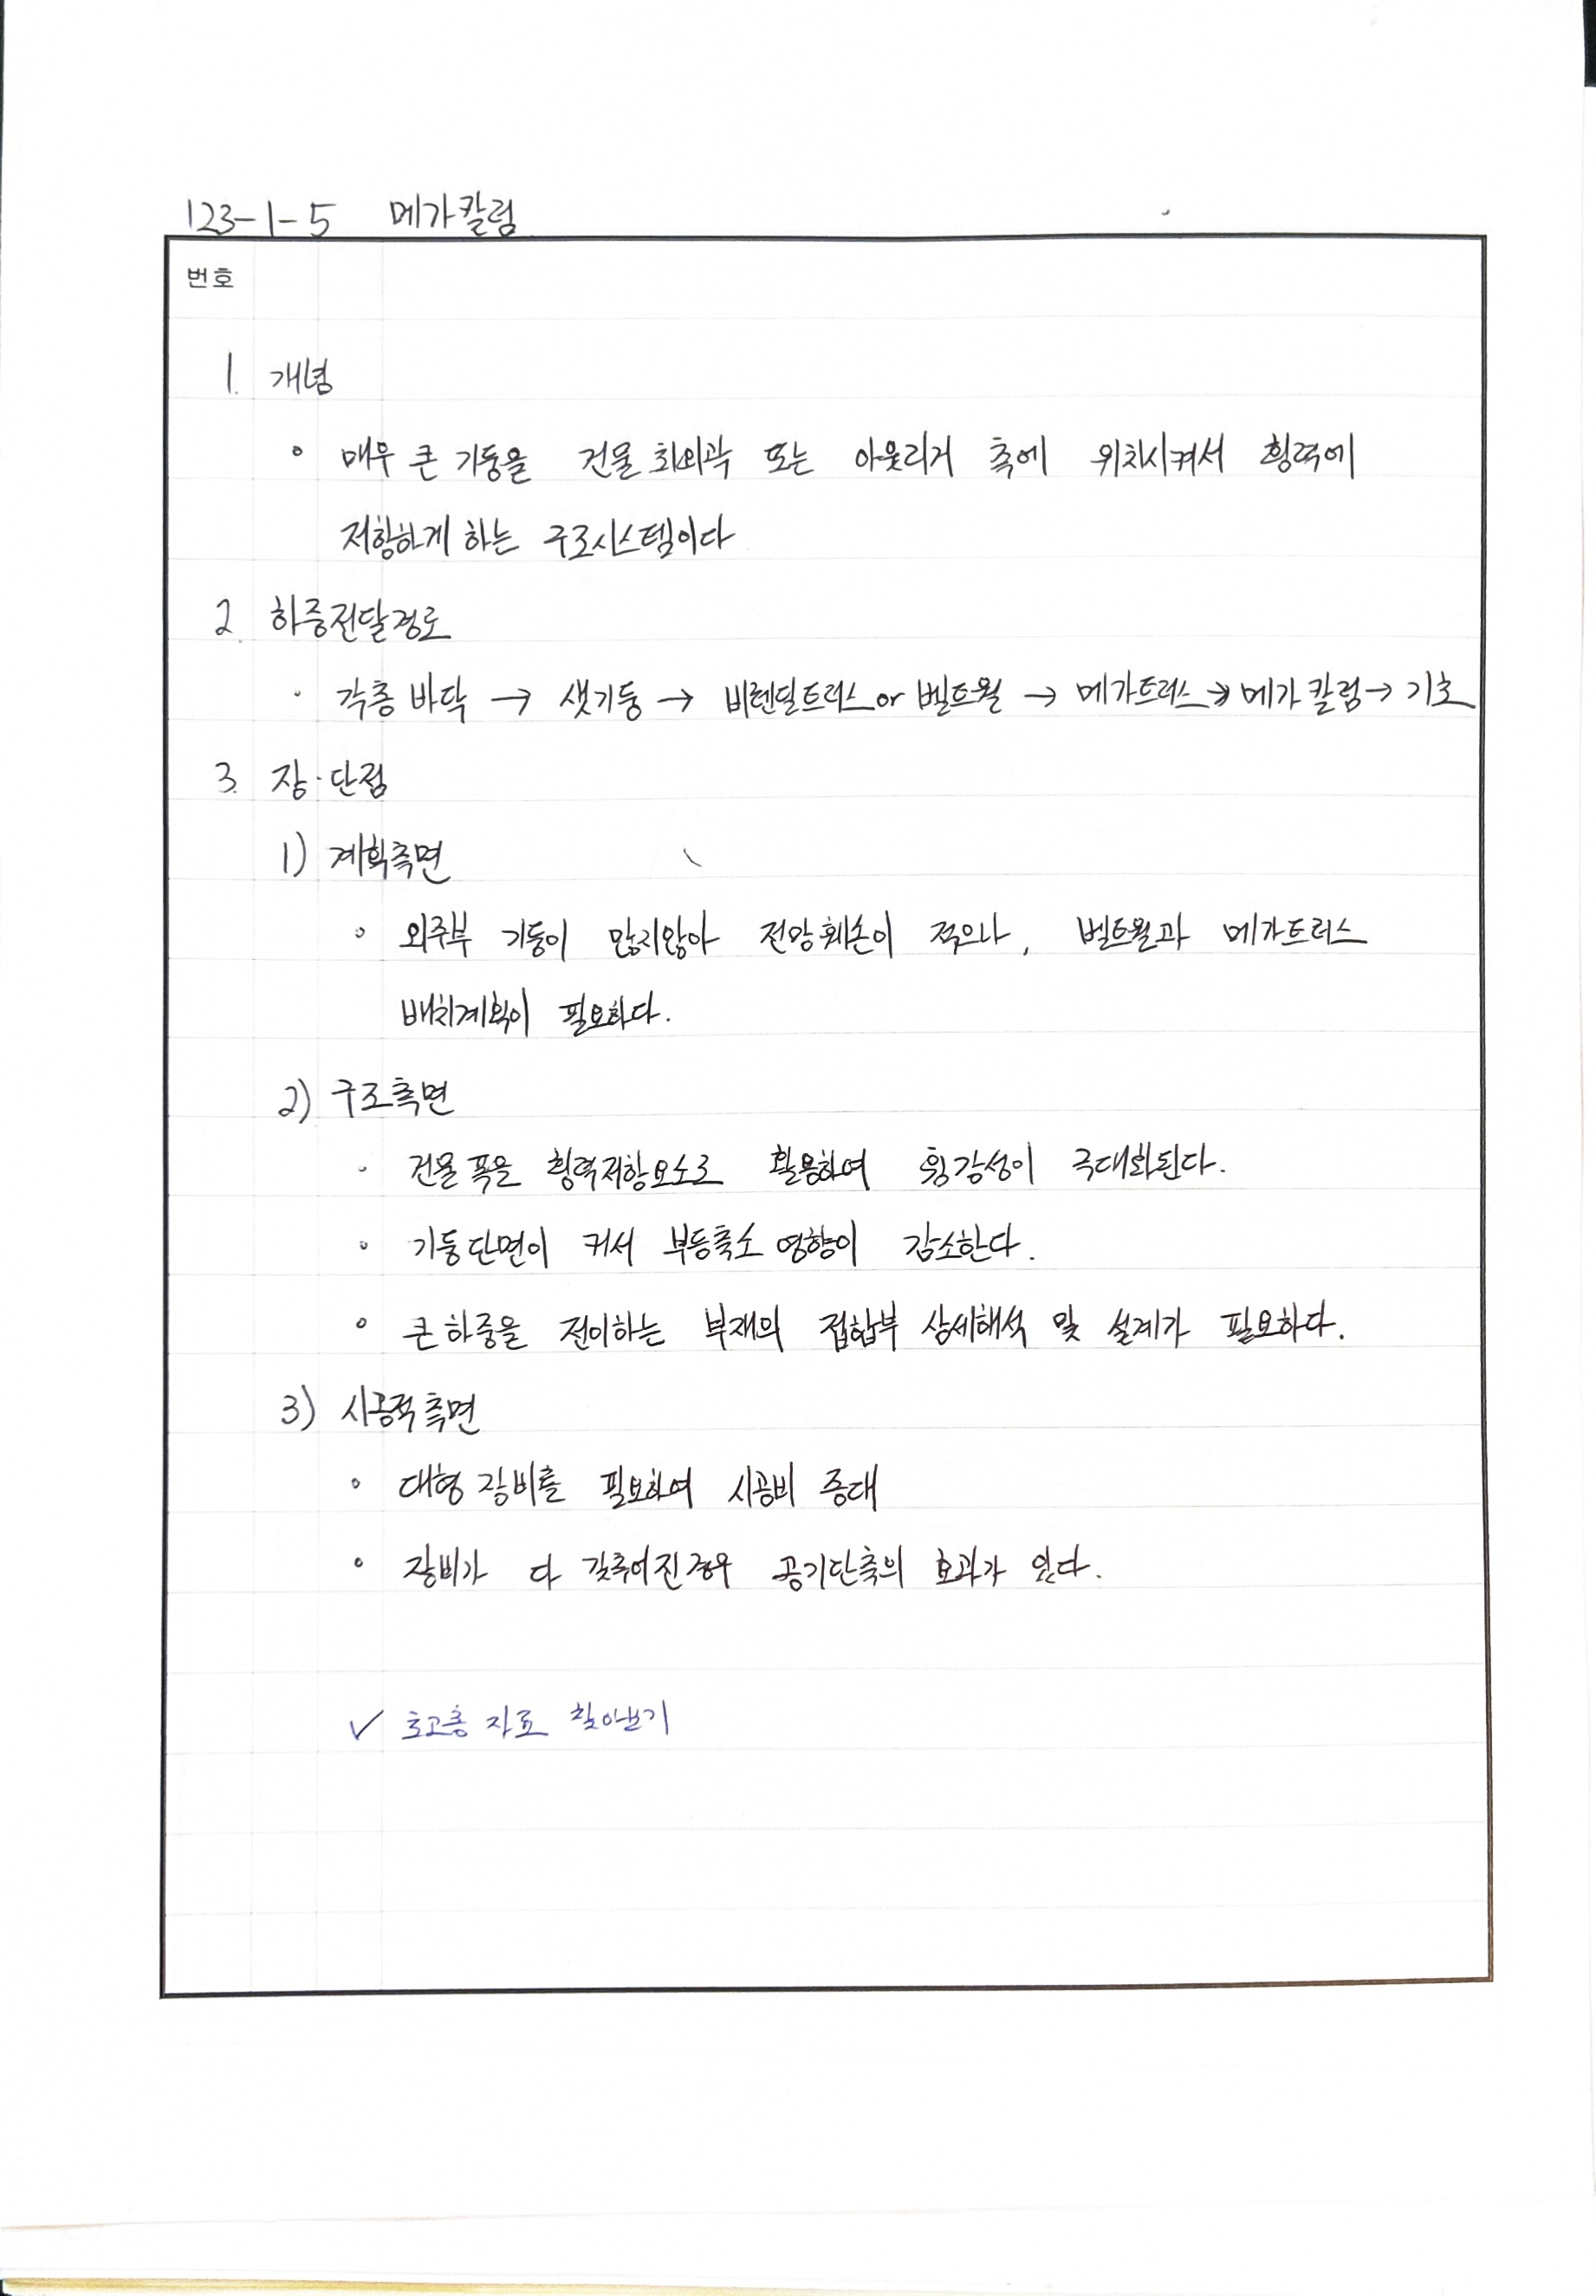 123-1-5 메가칼럼
번호
1. 개념
• 매우 큰 기둥을 건물 최외곽 또는 아웃리거 측에 위치시켜서 횡력에
저항하게 하는 구조시스템이다
2. 하중전달경로
• 각층 바닥 → 샛기둥 → 비렌딜트러스 or 벨트월 → 메가트러스 → 메가칼럼 → 기초
3. 장·단점
1) 계획측면
• 외주부 기둥이 많지않아 전망훼손이 적으나, 벨트월과 메가트러스
배치계획이 필요하다.
2) 구조측면
• 건물폭을 횡력저항요소로 활용하여 횡강성이 극대화된다.
• 기둥단면이 커서 부등축소 영향이 감소한다.
• 큰 하중을 전이하는 부재의 접합부 상세해석 및 설계가 필요하다.
3) 시공적측면
• 대형 장비를 필요하여 시공비 증대
• 장비가 다 갖추어진경우 공기단축의 효과가 있다.
✓ 초고층 자료 찾아보기